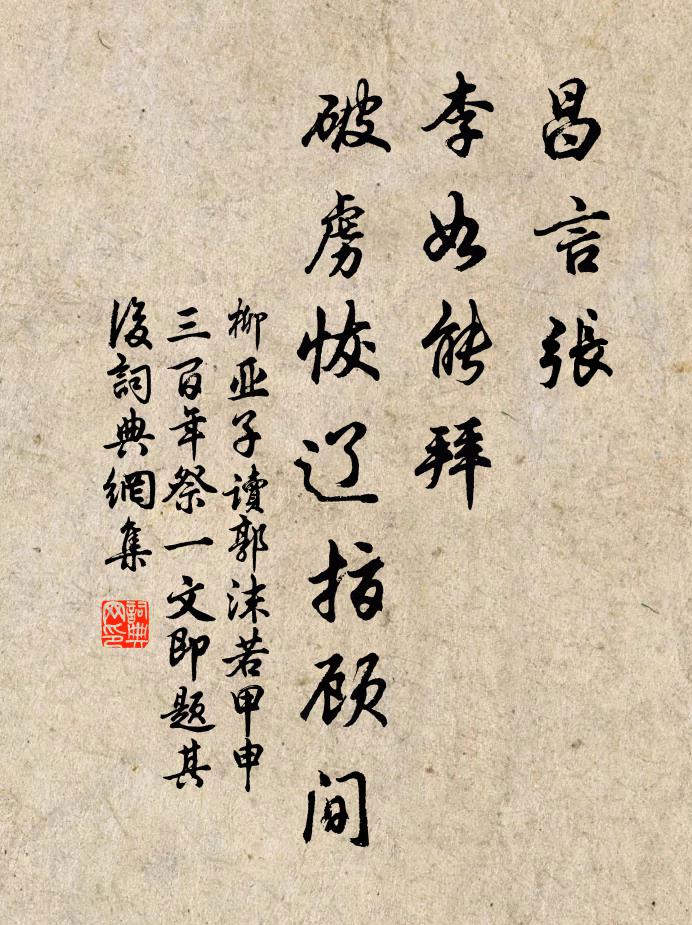 昌言張
李如能拜
破虜恢辽指顾间
柳亚子讀郭沫若甲申
三百年祭一文即题其
後詞典網集
詞典
网印